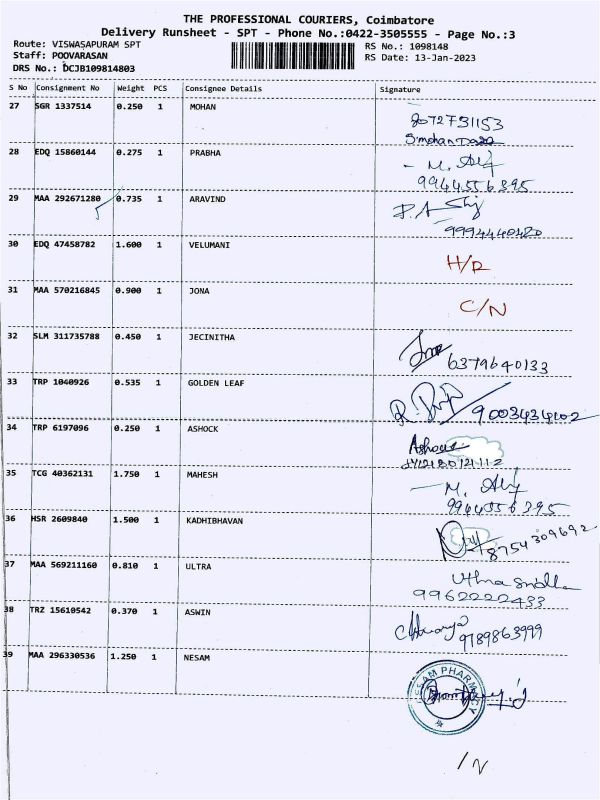 THE PROFESSIONAL COURIERS, Coimbatore
Delivery Runsheet - SPT - Phone No.:0422-3505555 - Page No.:3
Route: VISWASAPURAM SPT RS No.: 1098148
Staff: POOVARASAN RS Date: 13-Jan-2023
DRS No.: DCJB109814803
S No Consignment No Weight PCS Consignee Details Signature
27 SGR 1337514 0.250 1 MOHAN
8072731153
28 EDQ 15860144 0.275 1 PRABHA
9944556395
29 MAA 292671280 0.735 1 ARAVIND
9994440420
30 EDQ 47458782 1.600 1 VELUMANI
H/R
31 MAA 570216845 0.900 1 JONA
C/N
32 SLM 311735788 0.450 1 JECINITHA
6379640133
33 TRP 1040926 0.535 1 GOLDEN LEAF
9003434102
34 TRP 6197096 0.250 1 ASHOCK
35 TCG 40362131 1.750 1 MAHESH
9944556395
36 HSR 2609840 1.500 1 KADHIBHAVAN
8754309692
37 MAA 569211160 0.810 1 ULTRA
9962222433
38 TRZ 15610542 0.370 1 ASWIN
9789863999
39 MAA 296330536 1.250 1 NESAM
NESAM PHARMACY
/N